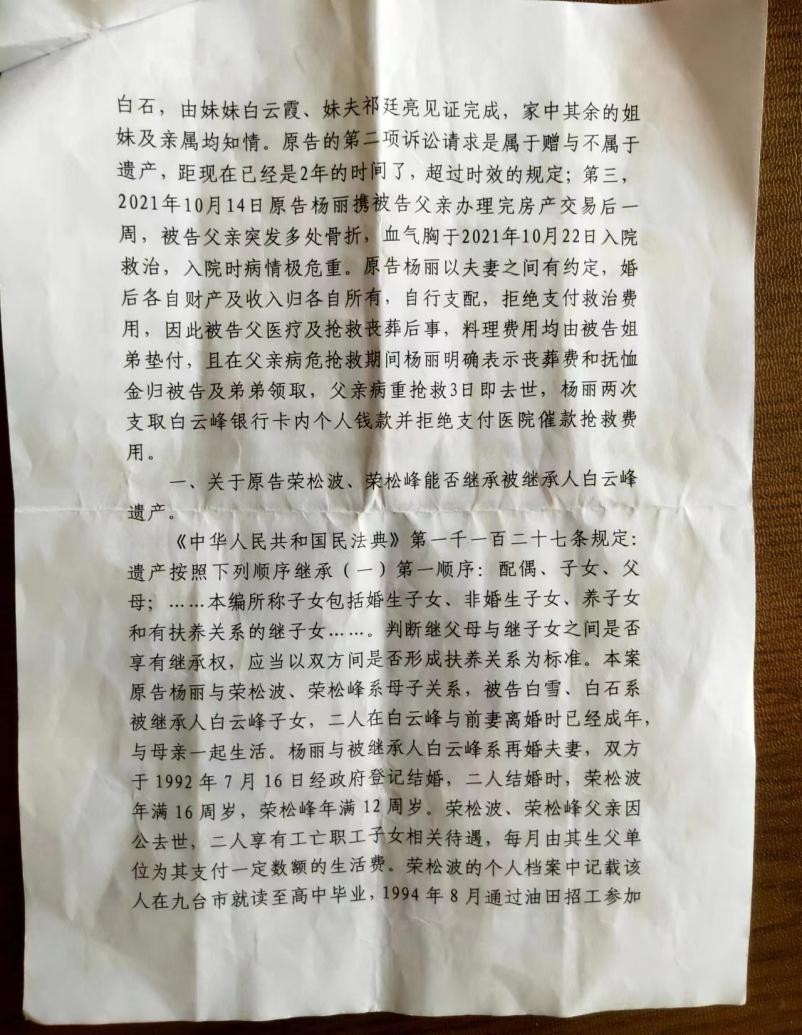 白石，由妹妹白云霞、妹夫祁廷亮见证完成，家中其余的姐
妹及亲属均知情。原告的第二项诉讼请求是属于赠与不属于
遗产，距现在已经是2年的时间了，超过时效的规定；第三，
2021年10月14日原告杨丽携被告父亲办理完房产交易后一
周，被告父亲突发多处骨折，血气胸于2021年10月22日入院
救治，入院时病情极危重。原告杨丽以夫妻之间有约定，婚
后各自财产及收入归各自所有，自行支配，拒绝支付救治费
用，因此被告父医疗及抢救丧葬后事，料理费用均由被告姐
弟垫付，且在父亲病危抢救期间杨丽明确表示丧葬费和抚恤
金归被告及弟弟领取，父亲病重抢救3日即去世，杨丽两次
支取白云峰银行卡内个人钱款并拒绝支付医院催款抢救费
用。
一、关于原告荣松波、荣松峰能否继承被继承人白云峰
遗产。
《中华人民共和国民法典》第一千一百二十七条规定：
遗产按照下列顺序继承（一）第一顺序：配偶、子女、父
母；……本编所称子女包括婚生子女、非婚生子女、养子女
和有扶养关系的继子女……。判断继父母与继子女之间是否
享有继承权，应当以双方间是否形成扶养关系为标准。本案
原告杨丽与荣松波、荣松峰系母子关系，被告白雪、白石系
被继承人白云峰子女，二人在白云峰与前妻离婚时已经成年，
与母亲一起生活。杨丽与被继承人白云峰系再婚夫妻，双方
于1992年7月16日经政府登记结婚，二人结婚时，荣松波
年满16周岁，荣松峰年满12周岁。荣松波、荣松峰父亲因
公去世，二人享有工亡职工子女相关待遇，每月由其生父单
位为其支付一定数额的生活费。荣松波的个人档案中记载该
人在九台市就读至高中毕业，1994年8月通过油田招工参加